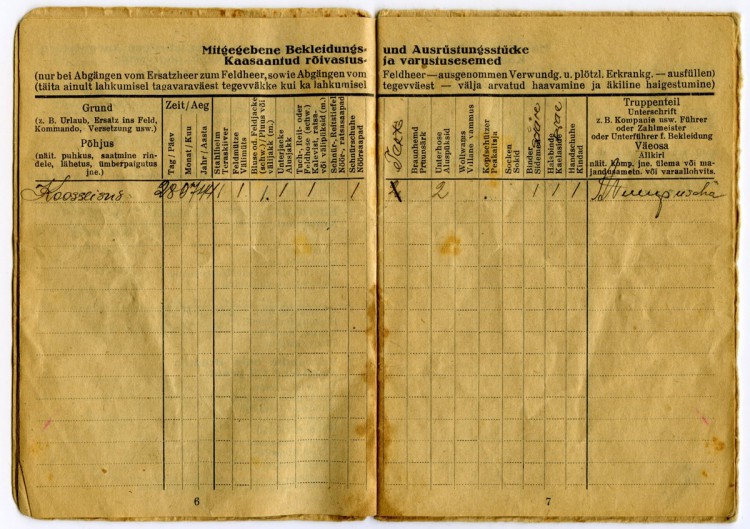 Mitgegebene Bekleidungs-
Kaasaantud rõivastus-
(nur bei Abgängen vom Ersatzheer zum Feldheer, sowie Abgängen vom
(täita ainult lahkumisel tagavaraväest tegevväkke kui ka lahkumisel
Grund
(z. B. Urlaub, Ersatz ins Feld,
Kommando, Versetzung usw.)
Põhjus
(näit. puhkus, saatmine rin-
dele, lähetus, ümberpaigutus
jne.)
Zeit/Aeg
Tag / Päev
Monat / Kuu
Jahr / Aasta
Stahlhelm
Teraskiiver
Feldmütze
Välimüts
Bluse od. Feldjacke
(schw.) / Pluus või
välijakk (m.)
Unterjacke
Alusjakk
Tuch-, Reit- oder
Feldhose (schw.)
Kalevist, ratsa-
või välipüksid (m.)
Schnür-, Reitstiefel
Nöör-, ratsasaapad
Schnürschuhe
Nöörsaapad
28 07 44 1 1 1 1 1 1 1
6
und Ausrüstungsstücke
ja varustusesemed
Feldheer — ausgenommen Verwundg. u. plötzl. Erkrankg. — ausfüllen)
tegevväest — välja arvatud haavamine ja äkiline haigestumine)
Braunhemd
Pruunsärk
Unterhose
Aluspüksid
Wollwams
Villane vammus
Kopfschützer
Peakaitsja
Socken
Sokid
Binder
Halsbinde
Handschuhe
Kindad
Truppenteil
Unterschrift
z. B. Kompanie usw. Führer
oder Zahlmeister
oder Unterführer f. Bekleidung
Väeosa
Allkiri
näit. komp. jne. ülema või ma-
jandusametn. või varaallohvits.
2 1 1 1
7